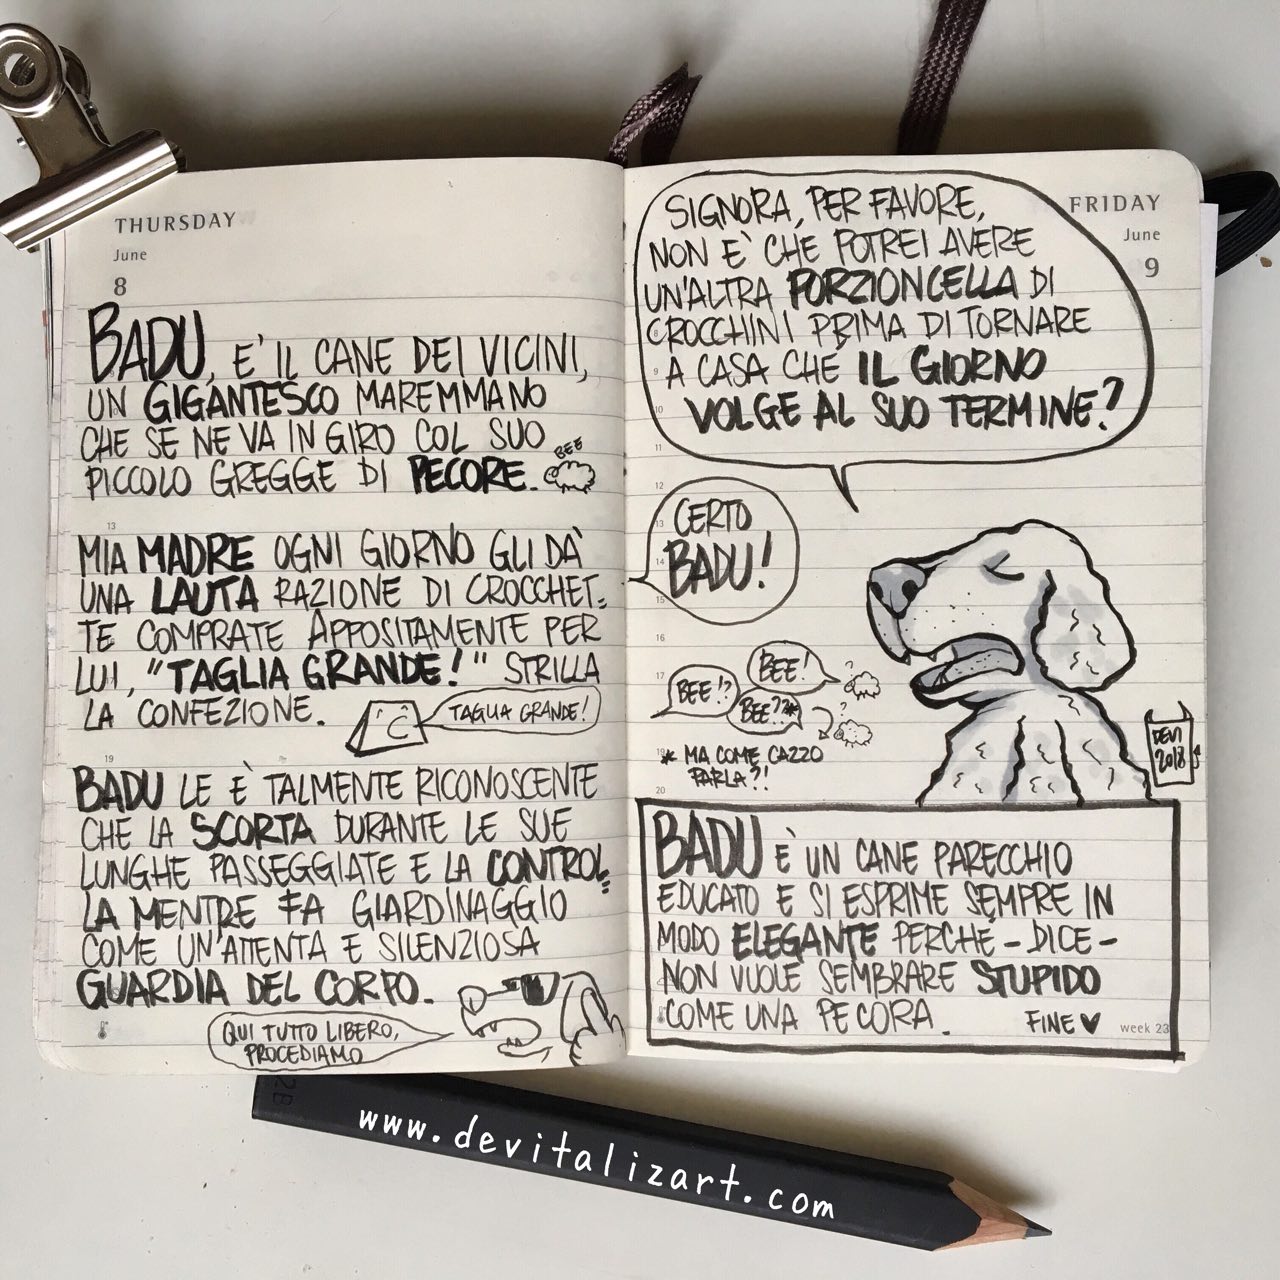 THURSDAY
June
8
BADU, E' IL CANE DEI VICINI,
UN GIGANTESCO MAREMMANO
CHE SE NE VA IN GIRO COL SUO
PICCOLO GREGGE DI PECORE.
BEE
13
MIA MADRE OGNI GIORNO GLI DA'
UNA LAUTA RAZIONE DI CROCCHET=
TE COMPRATE APPOSITAMENTE PER
LUI, "TAGLIA GRANDE!" STRILLA
LA CONFEZIONE.
TAGLIA GRANDE!
19
BADU LE È TALMENTE RICONOSCENTE
CHE LA SCORTA DURANTE LE SUE
LUNGHE PASSEGGIATE E LA CONTROL=
LA MENTRE FA GIARDINAGGIO
COME UN'ATTENTA E SILENZIOSA
GUARDIA DEL CORPO.
QUI TUTTO LIBERO,
PROCEDIAMO
FRIDAY
June
9
SIGNORA, PER FAVORE,
NON E' CHE POTREI AVERE
UN'ALTRA PORZIONCELLA DI
CROCCHINI PRIMA DI TORNARE
A CASA CHE IL GIORNO
VOLGE AL SUO TERMINE?
8
9
10
11
12
13
14
15
16
17
19
20
CERTO
BADU!
BEE!
BEE!?
BEE??*
* MA COME CAZZO
PARLA?!
DEVI
2018
BADU È UN CANE PARECCHIO
EDUCATO E SI ESPRIME SEMPRE IN
MODO ELEGANTE PERCHÉ - DICE -
NON VUOLE SEMBRARE STUPIDO
COME UNA PECORA.
FINE
week 23
2B
www.devitalizart.com